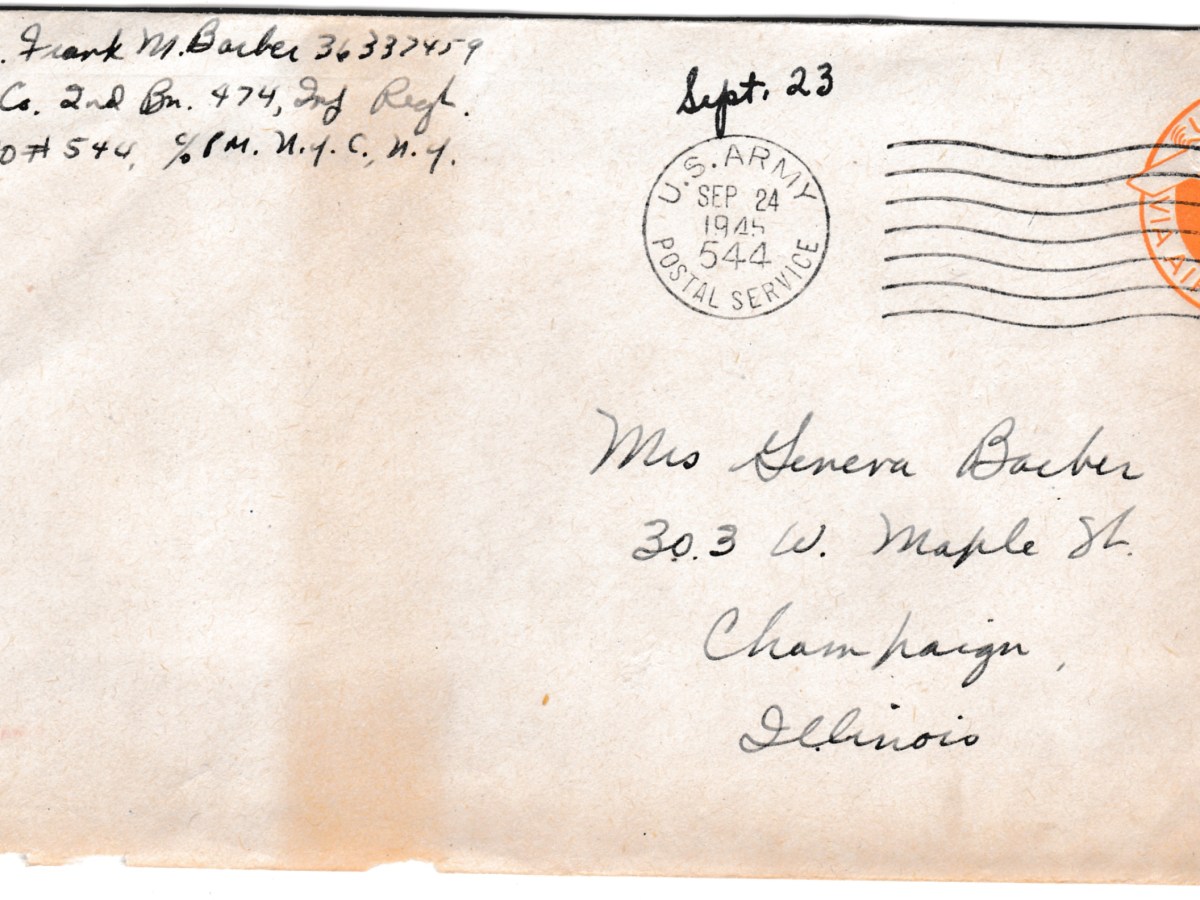 . Frank M. Barber 36337459
Co. 2nd Bn. 474, Inf Regt.
O # 544, c/o P.M. N.Y.C., N.Y.
Sept. 23
U.S. ARMY
SEP 24
1945
544
POSTAL SERVICE
VIA AI
Mrs Geneva Barber
303 W. Maple St.
Champaign,
Illinois